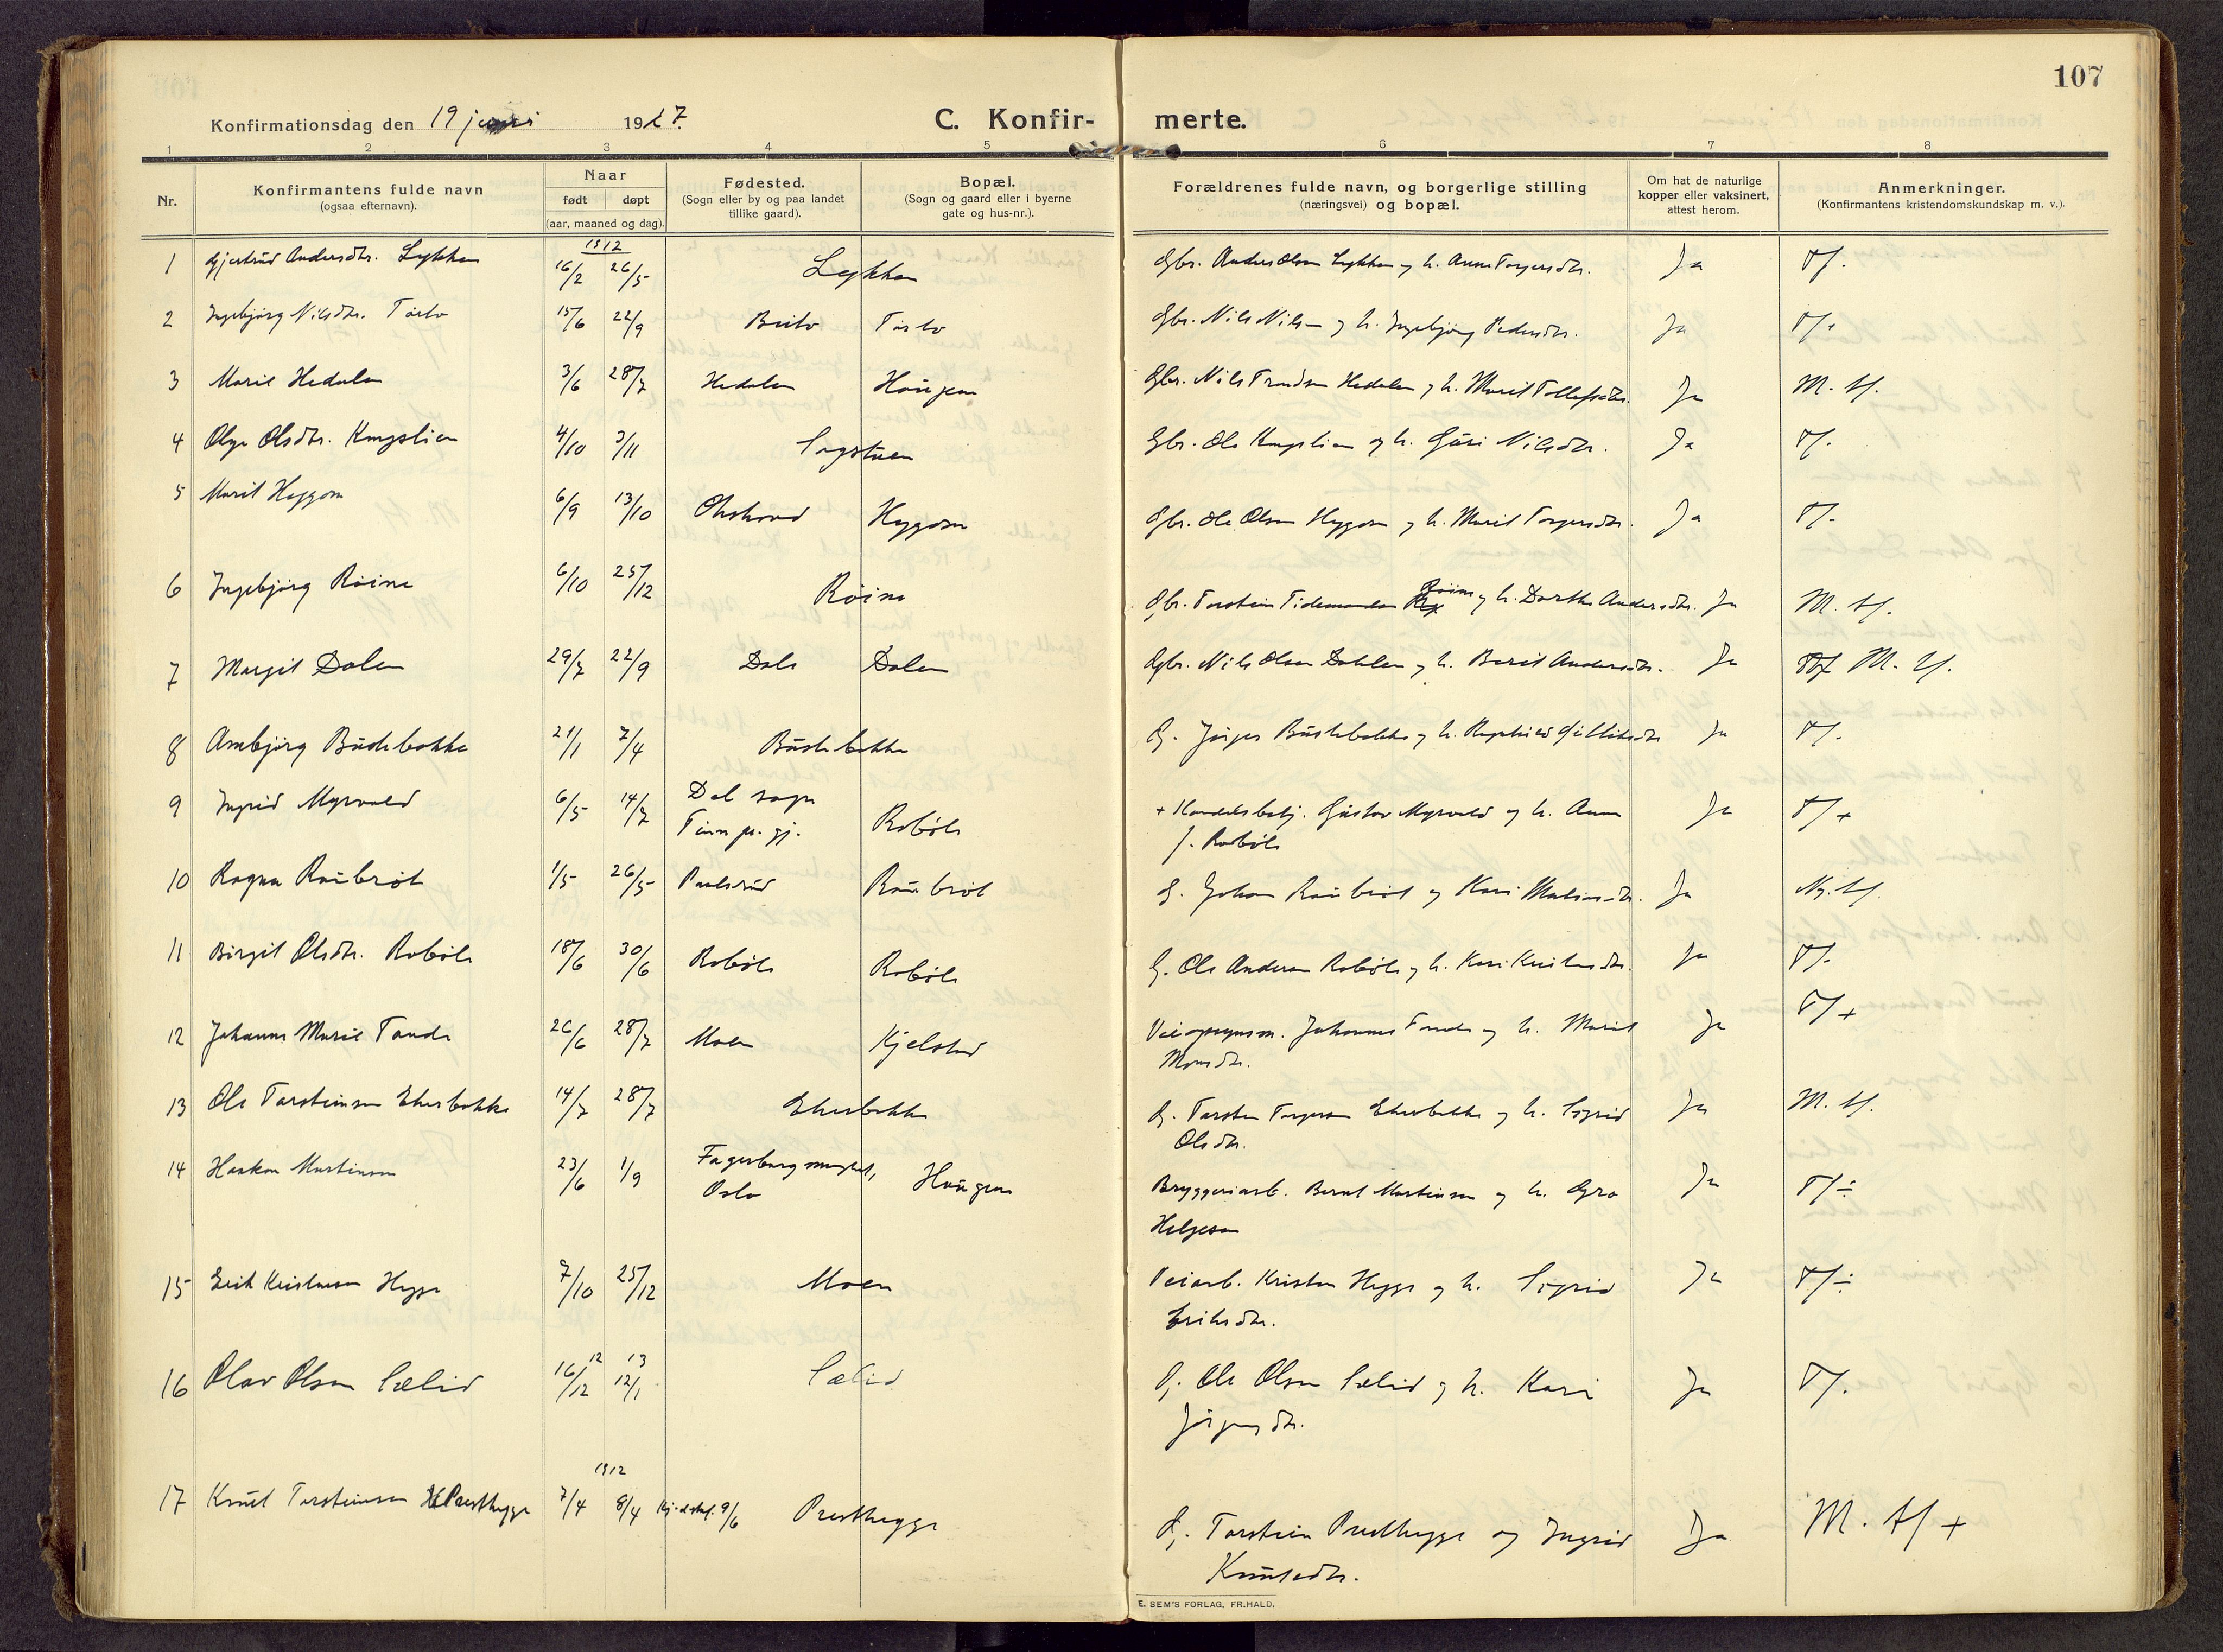 107
Konfirmationsdag den 19 juni 1927.
C. Konfir- merte.
1 2 3 4 5 6 7 8
Nr.
Konfirmantens fulde navn
(ogsaa efternavn).
Naar
født døpt
(aar, maaned og dag).
Fødested.
(Sogn eller by og paa landet
tillike gaard).
Bopæl.
(Sogn og gaard eller i byerne
gate og hus-nr.).
Forældrenes fulde navn, og borgerlige stilling
(næringsvei) og bopæl.
Om hat de naturlige
kopper eller vaksinert,
attest herom.
Anmerkninger.
(Konfirmantens kristendomskundskap m. v.).
1912
1 Gjertrud Andersdtr. Lykken 16/2 26/5 Lykken Gbr. Anders Olsen Lykken og h. Anne Torgersdtr. Ja T/.
2 Ingebjørg Nilsdtr. 15/6 22/9 Gbr. Nils Nilsen og h. Ingebjørg Pedersdtr. Ja T/.
3 Marit Hedalen 3/6 28/7 Hedalen Haugen Gbr. Nils Trondsen Hedalen og h. Marit Tollefsdtr. Ja M. t/.
4 Olga Olsdtr. Kongslien 4/10 3/11 Sagstuen Gbr. Ole Kongslien og h. Guri Nilsdtr. Ja T/.
5 Marit Heggom 6/9 13/10 Heggom Gbr. Ole Olsen Heggom og h. Marit Torgersdtr. Ja T/.
6 Ingebjørg Røine 6/10 25/12 Røine Gbr. Torstein Tidemandsen Røine og h. Dorthe Andersdtr. Ja M. t/.
7 Margit Dalen 29/7 22/9 Dale Dalen Gbr. Nils Olsen Dahlen og h. Berit Andersdtr. Ja M. t/.
8 Ambjørg Budebakke 21/1 7/4 Budebakke G. Jørgen Budebakke og h. Ragnhild Ja T/.
9 Ingrid Myrvold 6/5 14/7 Dal sogn Robøle + Handelsbetj. Gustav Myrvold og h. Anna Ja T/+
Tinn pr. gj.
f. Robøle
10 Ragna Raubrøt 1/5 26/5 Paulsrud Raubrøt G. Johan Raubrøt og Kari Ja Ng. t/.
11 Birgit Olsdtr. Robøle 18/6 30/6 Robøle Robøle G. Ole Andersen Robøle og h. Kari Ja T/.
12 Johanne Marie Tande 26/6 28/7 Moen Kjelstad Veiopsynsm. Johannes Tande og h. Marit Ja T/+
Monsdtr.
13 Ole Torsteinsen Ekerbakke 14/7 28/7 Ekerbakke G. Torsten Torgersen Ekerbakke og h. Sigrid Ja M. t/.
Olsdtr.
14 Haakon Martinsen 23/6 1/9 Fagerborg menighet, Haugen Bryggeriarb. Bernt Martinsen og h. Gro Ja T/÷
Oslo
Helgesen
15 Erik Kristensen Hegge 7/10 25/12 Moen Veiarb. Kristen Hegge og h. Sigrid Ja T/÷
Eriksdtr.
12 13
16 Olav Olsen Sælid 16/12 12/1 Sælid G. Ole Olsen Sælid og h. Kari Ja T/.
Jørgensdtr.
1912
17 Knut Torsteinsen Presthegge 7/4 8/4 9/6 Presthegge G. Torstein Presthegge og Ingrid Ja M. t/ +
Knutsdtr.
E. SEM'S FORLAG, FR.HALD.